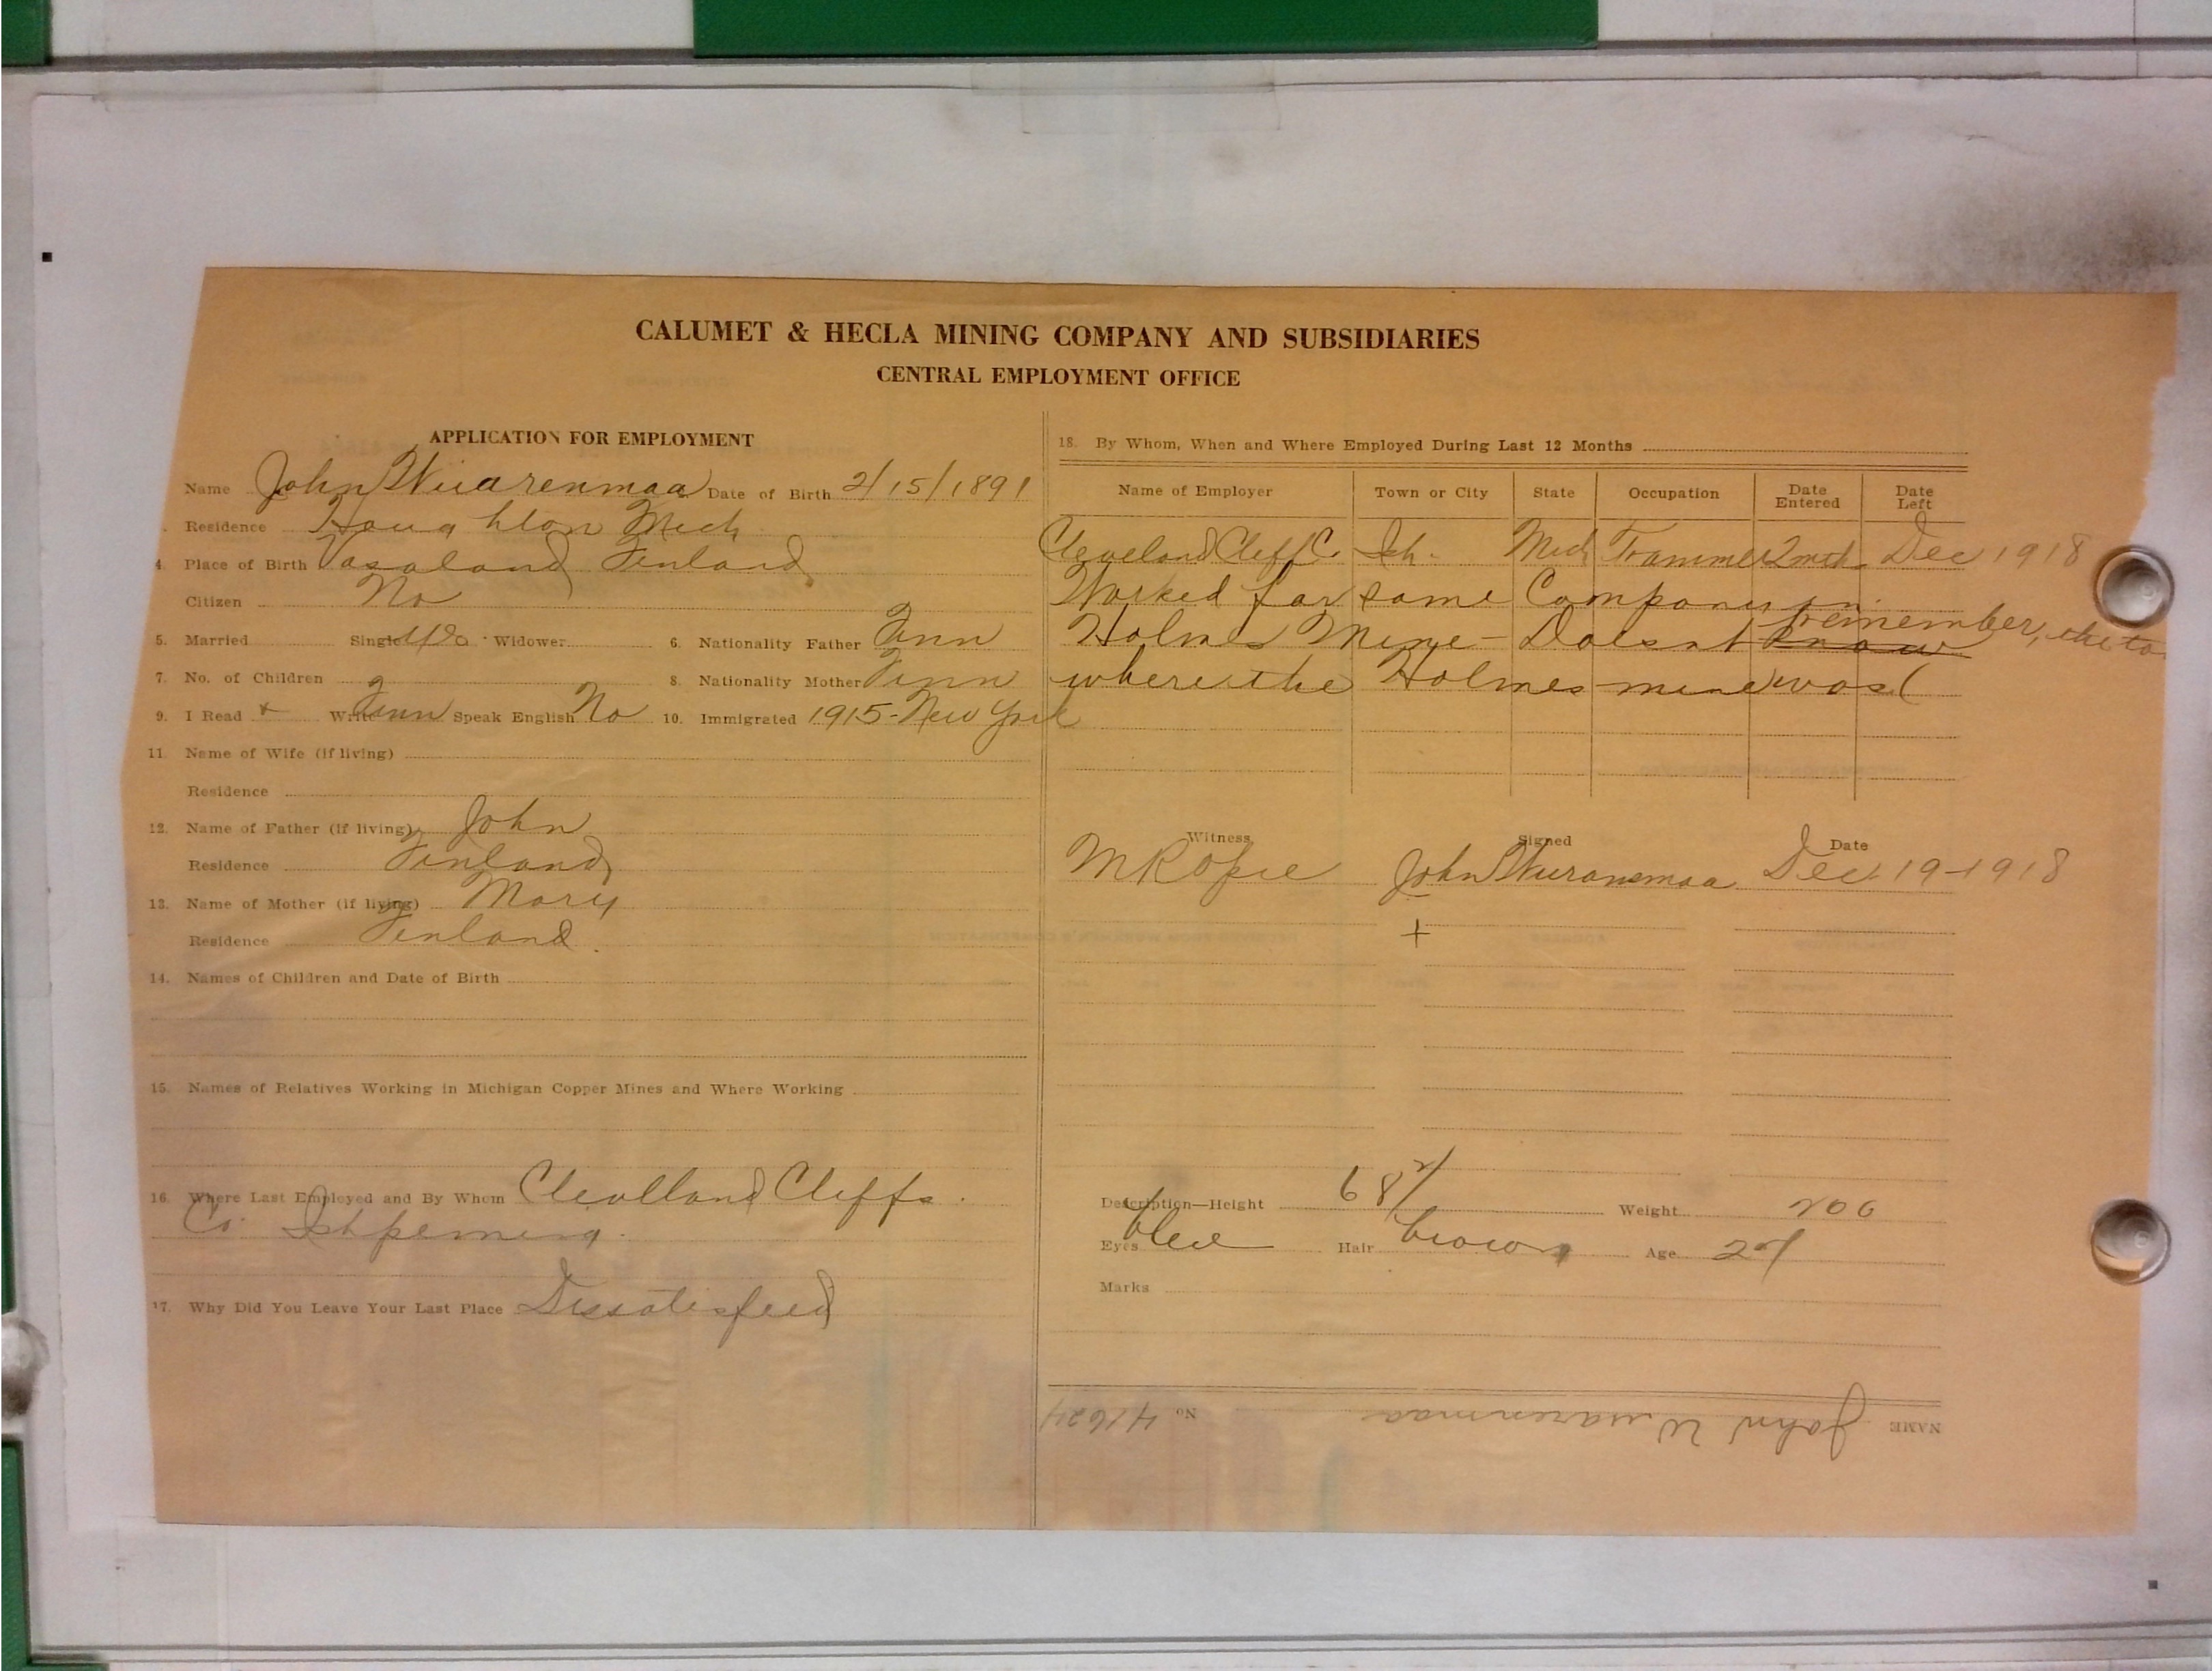 CALUMET & HECLA MINING COMPANY AND SUBSIDIARIES
CENTRAL EMPLOYMENT OFFICE
APPLICATION FOR EMPLOYMENT
Name John Wuarenmaa Date of Birth 2/15/1891
Residence Houghton Mich
4. Place of Birth Vasaland Finland
Citizen No
5. Married Single Yes Widower 6. Nationality Father Finn
7. No. of Children 8. Nationality Mother Finn
9. I Read + Write Finn Speak English No 10. Immigrated 1915-New York
11. Name of Wife (if living)
Residence
12. Name of Father (if living) John
Residence Finland
13. Name of Mother (if living) Mary
Residence Finland.
14. Names of Children and Date of Birth
15. Names of Relatives Working in Michigan Copper Mines and Where Working
16. Where Last Employed and By Whom Clevlland Cliffs.
Co. Ishpeming.
17. Why Did You Leave Your Last Place Dissatisfied
18. By Whom, When and Where Employed During Last 12 Months
Name of Employer Town or City State Occupation Date Entered Date Left
Cleveland Cliff Co Ish. Mich Trammer 2mth Dec 1918
Worked for same Company in
remember, the to
Holmes Mine - Doesnt know
where the Holmes mine was (
Witness Signed Date
MR Opie John Wuranemaa Dec 19-1918
+
Description—Height 68 Weight 200
Eyes blue Hair brown Age 27
Marks
NAME John Wuarenmaa No 41624